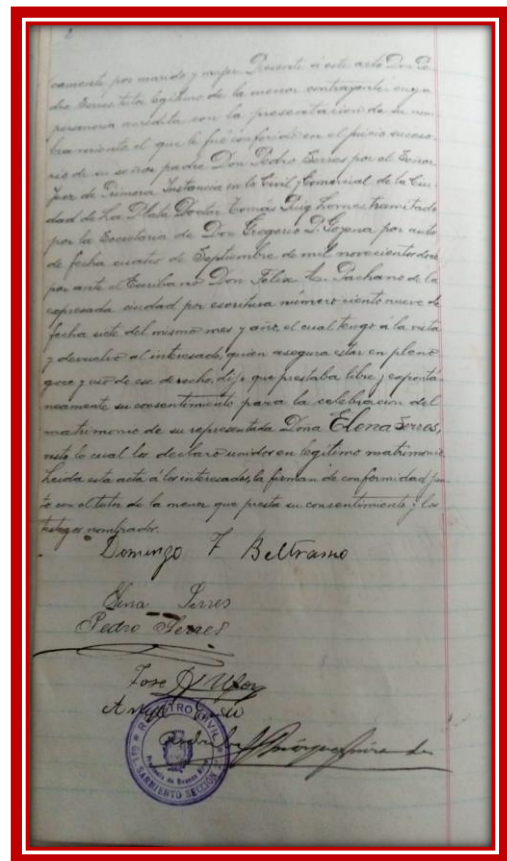 camente por marido y mujer. Presente á este acto Don Pe-
dro Serres tutor legítimo de la menor contrayente cuya
personeria acredita con la presentacion de su nom-
bramiento el que le fué conferido en el juicio suceso-
rio de su señor padre Don Pedro Serres por el Señor
Juez de Primera Instancia en lo Civil y Comercial de la Ciu-
dad de La Plata Doctor Tomás Puig Lomes tramitado
por la Secretaria de Don Gregorio P. Gozena por auto
de fecha cuatro de Septiembre de mil novecientos doce
por ante el Escribano Don Felix A. Pachano de la
expresada ciudad por escritura número ciento nueve de
fecha siete del mismo mes y año, el cual tengo á la vista
y devuelvo al interesado, quien asegura estar en pleno
goce y uso de ese derecho, dijo que prestaba libre y espontá-
neamente su consentimiento para la celebracion del
matrimonio de su representada Doña Elena Serres,
visto lo cual los declaro unidos en legítimo matrimonio.
Leida esta acta á los interesados, la firman de conformidad jun-
to con el tutor de la menor que presta su consentimiento y los
testigos nombrados.
Domingo F Beltramo
Elena Serres
Pedro Serres
José
REGISTRO CIVIL
Provincia de Buenos Aires
SARMIENTO SECCIÓN